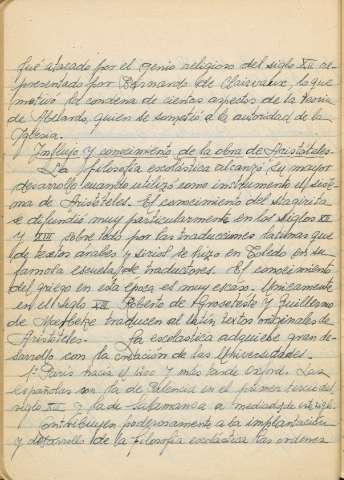 fué atacado por el genio religioso del siglo XII re-
presentado por Bernardo de Claraveaux, lo que
motivó la condena de ciertos aspectos de la teoría
de Abelardo, quien se sometió a la autoridad de la
Iglesia.
Influjo y conocimiento de la obra de Aristóteles.
La filosofía escolástica alcanzó su mayor
desarrollo cuando utilizó como instrumento el siste-
ma de Aristóteles. El conocimiento del Stagirita
se difundió muy particularmente en los siglos XII
y XIII sobre todo por las traducciones latinas que
de textos árabes y sirios se hizo en Toledo en su
famosa escuela de traductores. El conocimiento
del griego en esta época es muy escaso. Únicamente
en el siglo XIII Roberto de Grosseteste y Guillermo
de Moerbeke traducen al latín textos originales de
Aristóteles. La escolástica adquiere gran de-
sarrollo con la creación de las Universidades.
1ª París hacia el 1200 y más tarde Oxford. Las
españolas son la de Palencia en el primer tercio del
siglo XIII y la de Salamanca a mediados de este siglo.
Contribuyen poderosamente a la implantación
y desarrollo de la filosofía escolástica las ordenes